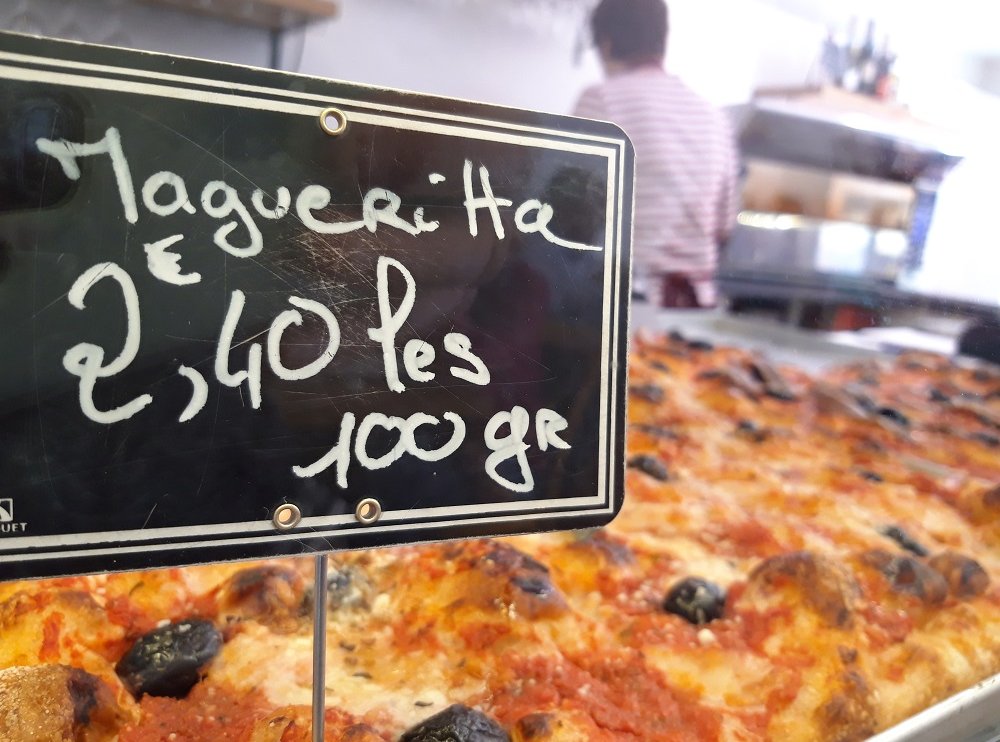 Magueritta
2,40€ les
100 gr